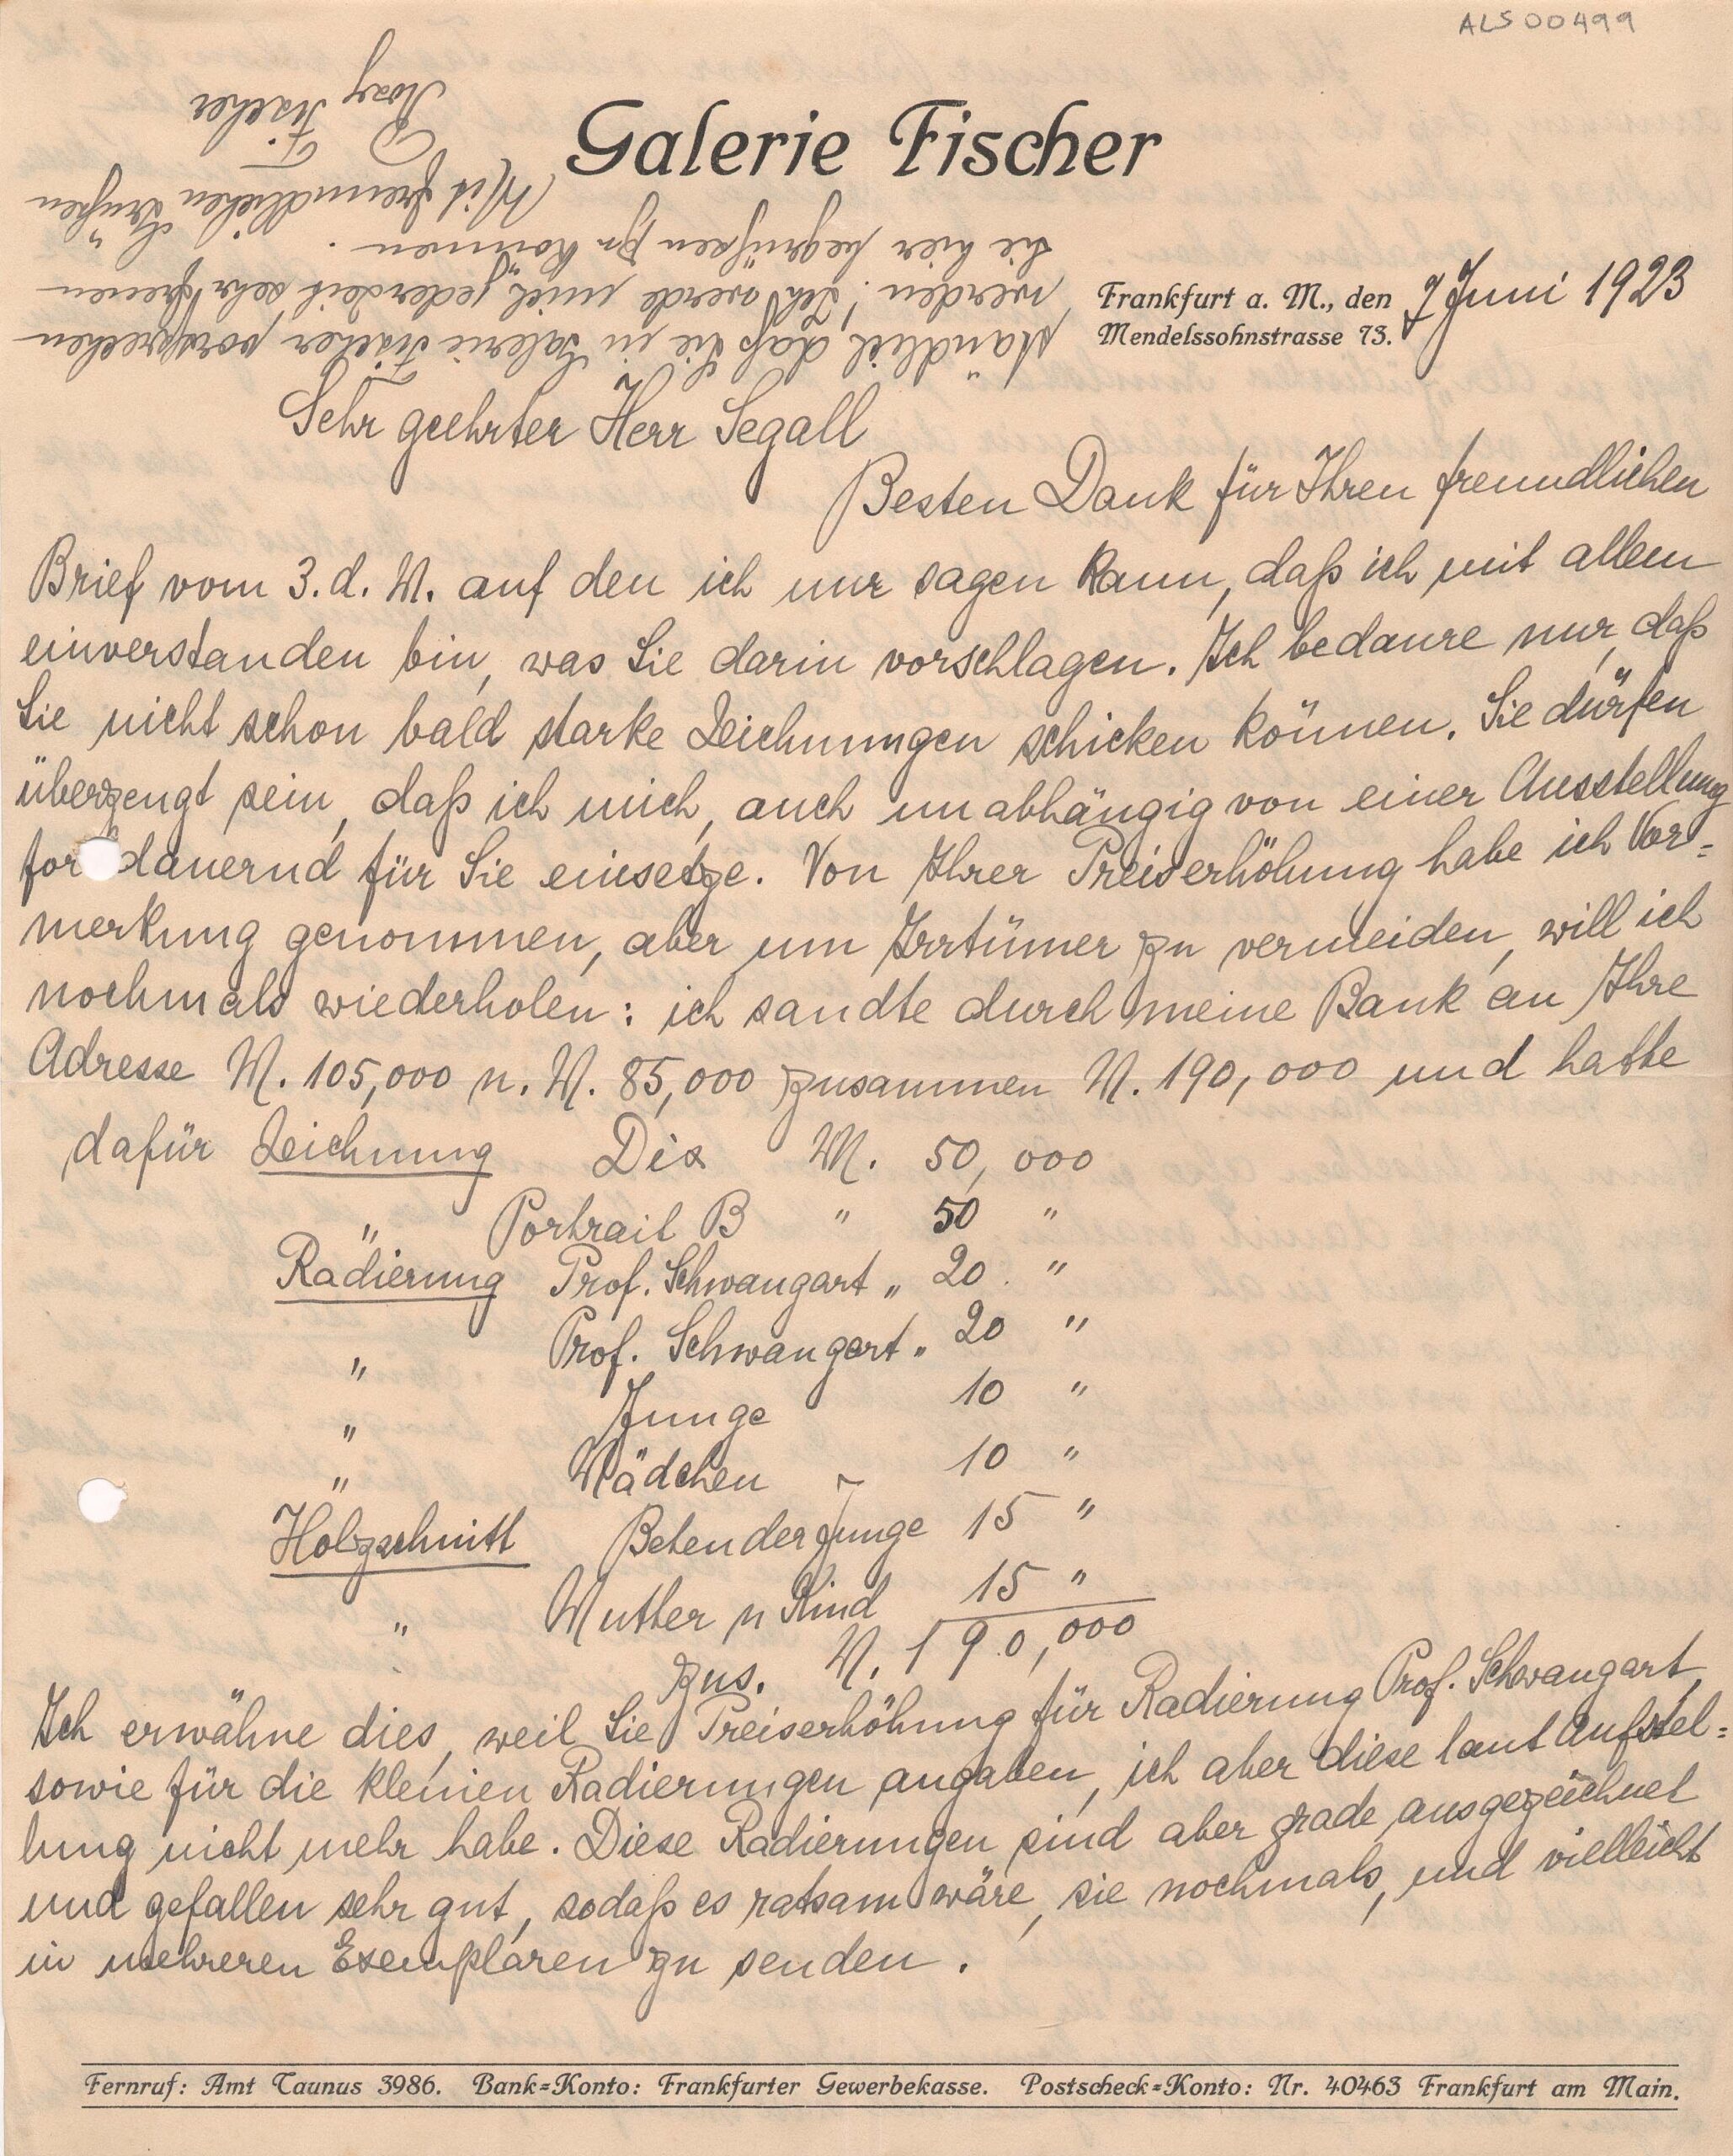 ALS 00499
Galerie Fischer
Frankfurt a. M., den 7 Juni 1923
Mendelssohnstrasse 73.
Sehr geehrter Herr Segall
Besten Dank für Ihren freundlichen
Brief vom 3. d. M. auf den ich nur sagen kann, daß ich mit allem
einverstanden bin, was Sie darin vorschlagen. Ich bedaure nur, daß
Sie nicht schon bald starke Zeichnungen schicken können. Sie dürfen
überzeugt sein, daß ich mich, auch unabhängig von einer Ausstellung
for dauernd für Sie einsetze. Von Ihrer Preiserhöhung habe ich Vor=
merkung genommen, aber um Irrtümer zu vermeiden, will ich
nochmals wiederholen: ich sandte durch meine Bank an Ihre
Adresse M. 105,000 u. M. 85,000 zusammen M. 190,000 und hatte
dafür Zeichnung Dix M. 50,000
" Portrait B " 50 "
Radierung Prof. Schwangart " 20. "
" Prof. Schwangart " 20 "
" Junge 10 "
" Mädchen 10 "
Holzschnitt Betender Junge 15 "
" Mutter u Kind 15 "
zus. M. 190,000
Ich erwähne dies, weil Sie Preiserhöhung für Radierung Prof. Schwangart,
sowie für die kleinen Radierungen angaben, ich aber diese laut Aufstel=
lung nicht mehr habe. Diese Radierungen sind aber grade ausgezeichnet
und gefallen sehr gut, sodaß es ratsam wäre, sie nochmals, und vielleicht
in mehreren Exemplaren zu senden.
ständlich daß Sie in Galerie Fischer vorsprechen
werden! Ich werde mich jederzeit sehr freuen
Sie hier begrüßen zu können.
Mit freundlichen Grüßen
Rosy Fischer
Fernruf: Amt Taunus 3986. Bank=Konto: Frankfurter Gewerbekasse. Postscheck=Konto: Nr. 40463 Frankfurt am Main.